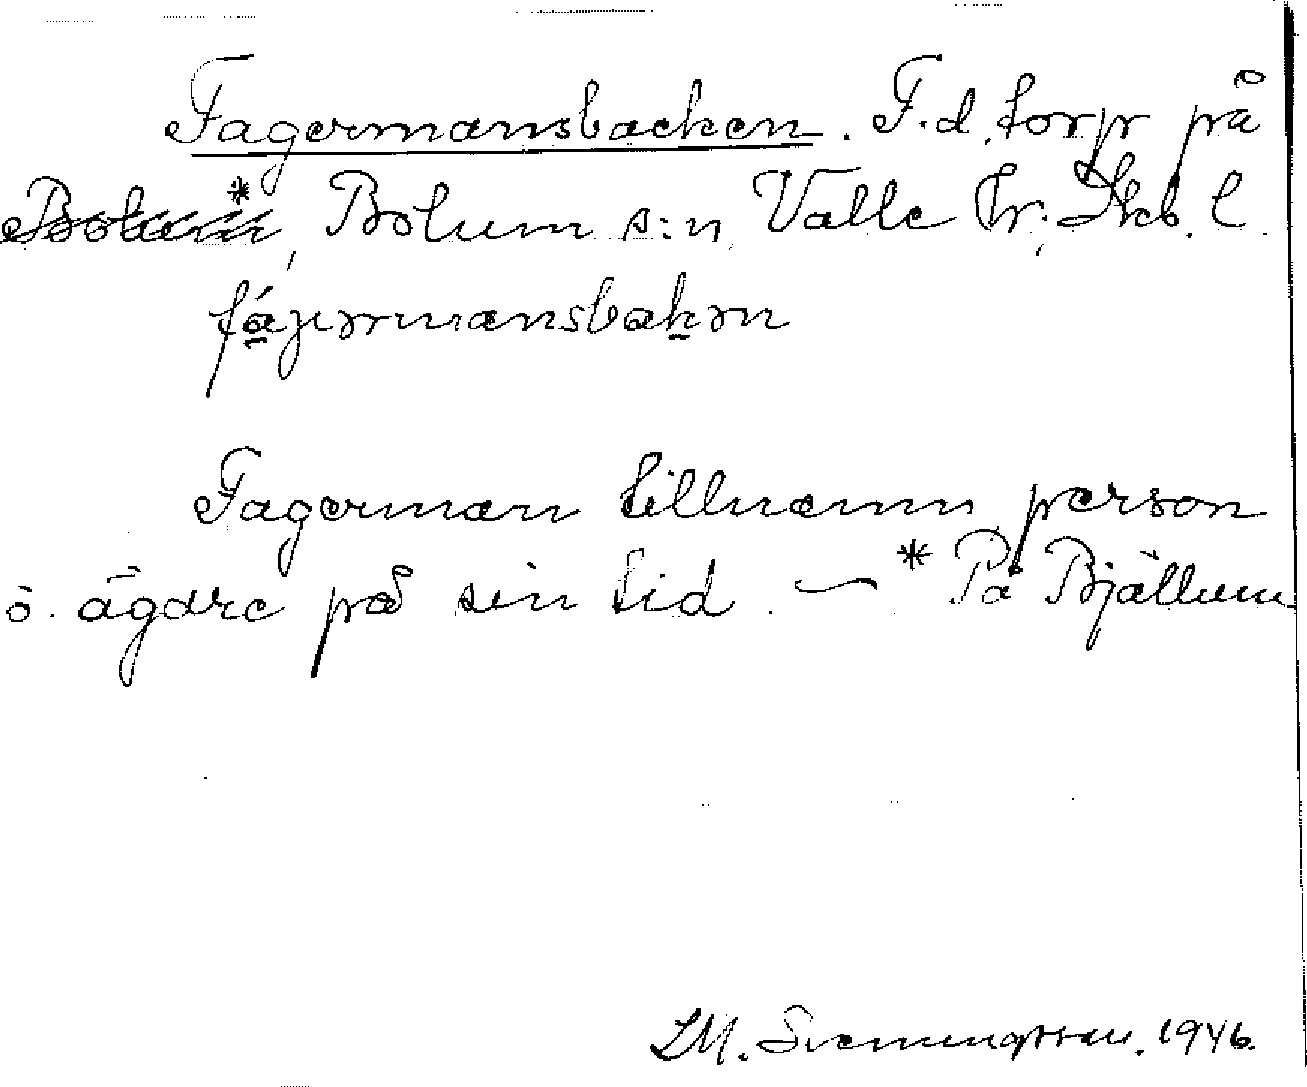 Fagermansbacken. F.d. torp på
Bolum*, Bolum s:n, Valle hr; Skb. l.
fágərmansbakən
Fagerman tillnamn, person
o. ägare på sin tid. — * På Bjällum
LM. Svenungsson. 1946.